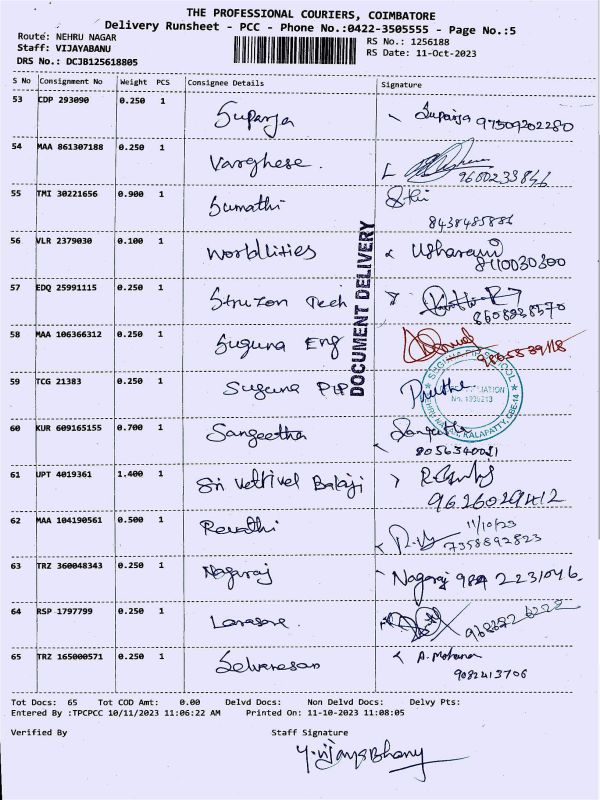 THE PROFESSIONAL COURIERS, COIMBATORE
Delivery Runsheet - PCC - Phone No.:0422-3505555 - Page No.:5
Route: NEHRU NAGAR
Staff: VIJAYABANU
DRS No.: DCJB125618805
RS No.: 1256188
RS Date: 11-Oct-2023
S No Consignment No Weight PCS Consignee Details Signature
53 CDP 293090 0.250 1 Suparja Suparja 97509202280
54 MAA 861307188 0.250 1 Varghese. 9600233846
55 TMI 30221656 0.900 1 Sumathi
8438485886
56 VLR 2379030 0.100 1 Worldlities Usharani
8110030300
57 EDQ 25991115 0.250 1 Struzon Tech
8608838570
58 MAA 106366312 0.250 1 Suguna Eng 9865539118
59 TCG 21383 0.250 1 Suguna PIP
60 KUR 609165155 0.700 1 Sangeetha Sangeetha
8056340021
61 UPT 4019361 1.400 1 Sri Vettrivel Balaji
9626029412
62 MAA 104190561 0.500 1 Revathi 11/10/23
7358892823
63 TRZ 360048343 0.250 1 Nagaraj Nagaraj 989 2231046.
64 RSP 1797799 0.250 1 Larasore.
65 TRZ 165000571 0.250 1 Selvanesan A. Mohana
9082413706
DOCUMENT DELIVERY
SUGUNA PIP SCHOOL
No. 1930213
NEHRU NAGAR, KALAPATTY, CBE-14
Tot Docs: 65 Tot COD Amt: 0.00 Delvd Docs: Non Delvd Docs: Delvy Pts:
Entered By :TPCPCC 10/11/2023 11:06:22 AM Printed On: 11-10-2023 11:08:05
Verified By Staff Signature
Y. Vijaya Bhanu